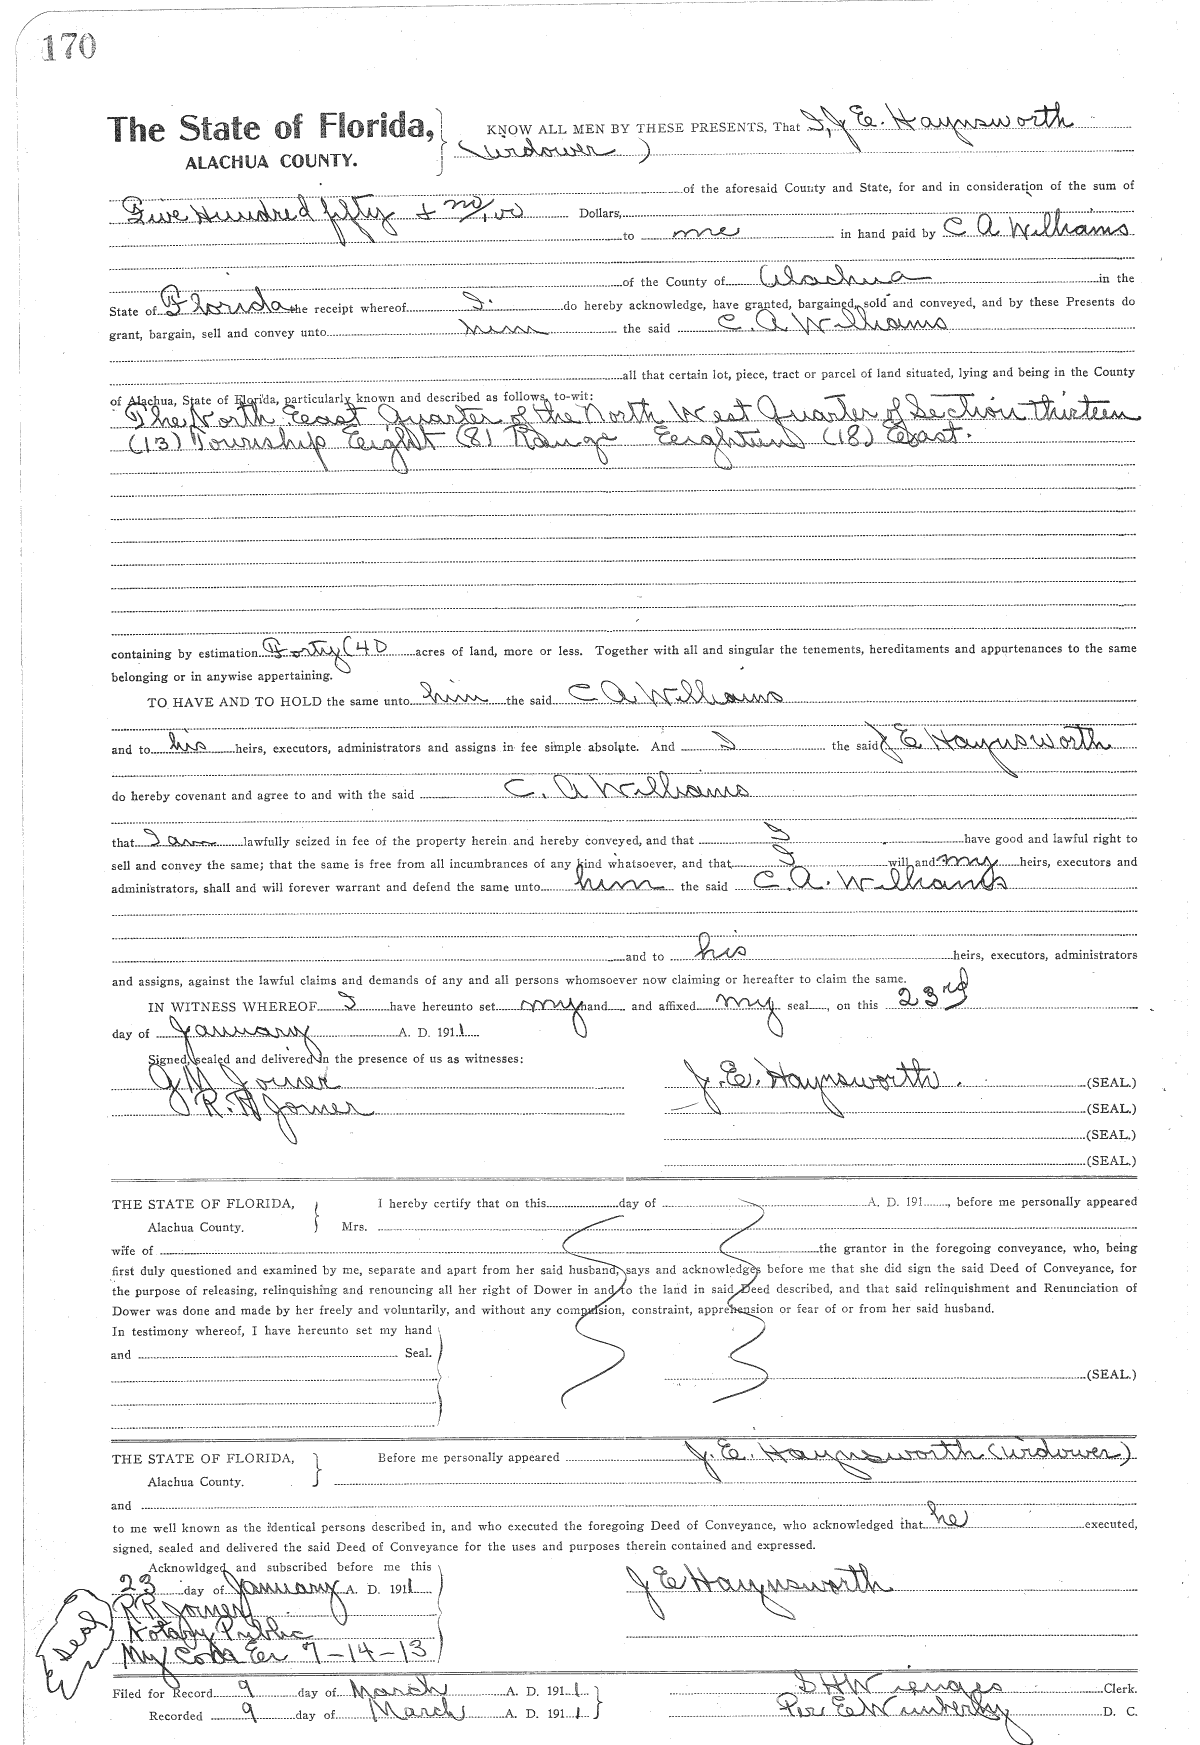 170
The State of Florida, KNOW ALL MEN BY THESE PRESENTS, That I, J E. Haynsworth
ALACHUA COUNTY. (widower)
of the aforesaid County and State, for and in consideration of the sum of
Five Hundred fifty & no/100 Dollars,
to me in hand paid by C A Williams
of the County of Alachua in the
State of Florida the receipt whereof I do hereby acknowledge, have granted, bargained, sold and conveyed, and by these Presents do
grant, bargain, sell and convey unto him the said C. A Williams
all that certain lot, piece, tract or parcel of land situated, lying and being in the County
of Alachua, State of Florida, particularly known and described as follows, to-wit:
The North East Quarter of the North West Quarter of Section Thirteen
(13) Township Eight (8) Range Eeighteen (18) East.
containing by estimation Forty (40 acres of land, more or less. Together with all and singular the tenements, hereditaments and appurtenances to the same
belonging or in anywise appertaining.
TO HAVE AND TO HOLD the same unto him the said C A Williams
and to his heirs, executors, administrators and assigns in fee simple absolute. And I the said J E Haynsworth
do hereby covenant and agree to and with the said C. A Williams
that I am lawfully seized in fee of the property herein and hereby conveyed, and that I have good and lawful right to
sell and convey the same; that the same is free from all incumbrances of any kind whatsoever, and that I will and my heirs, executors and
administrators, shall and will forever warrant and defend the same unto him the said C. A. Williams
and to his heirs, executors, administrators
and assigns, against the lawful claims and demands of any and all persons whomsoever now claiming or hereafter to claim the same.
IN WITNESS WHEREOF I have hereunto set my hand and affixed my seal, on this 23rd
day of January A. D. 1911
Signed, sealed and delivered in the presence of us as witnesses:
G M Joiner J. E. Haynsworth. (SEAL.)
R. R Joiner (SEAL.)
(SEAL.)
(SEAL.)
THE STATE OF FLORIDA, I hereby certify that on this day of A. D. 191 , before me personally appeared
Alachua County. Mrs.
wife of the grantor in the foregoing conveyance, who, being
first duly questioned and examined by me, separate and apart from her said husband, says and acknowledges before me that she did sign the said Deed of Conveyance, for
the purpose of releasing, relinquishing and renouncing all her right of Dower in and to the land in said Deed described, and that said relinquishment and Renunciation of
Dower was done and made by her freely and voluntarily, and without any compulsion, constraint, apprehension or fear of or from her said husband.
In testimony whereof, I have hereunto set my hand
and Seal.
(SEAL.)
THE STATE OF FLORIDA, Before me personally appeared J. E. Haynsworth (widower)
Alachua County.
and
to me well known as the identical persons described in, and who executed the foregoing Deed of Conveyance, who acknowledged that he executed,
signed, sealed and delivered the said Deed of Conveyance for the uses and purposes therein contained and expressed.
Acknowldged and subscribed before me this
23 day of January A. D. 1911 J E Haynsworth
R R Joiner
Notary Public
Seal
My Com Ex 7-14-13
Filed for Record 9 day of March A. D. 1911 S H Wienges Clerk.
Recorded 9 day of March A. D. 1911 Per E Wimberly D. C.